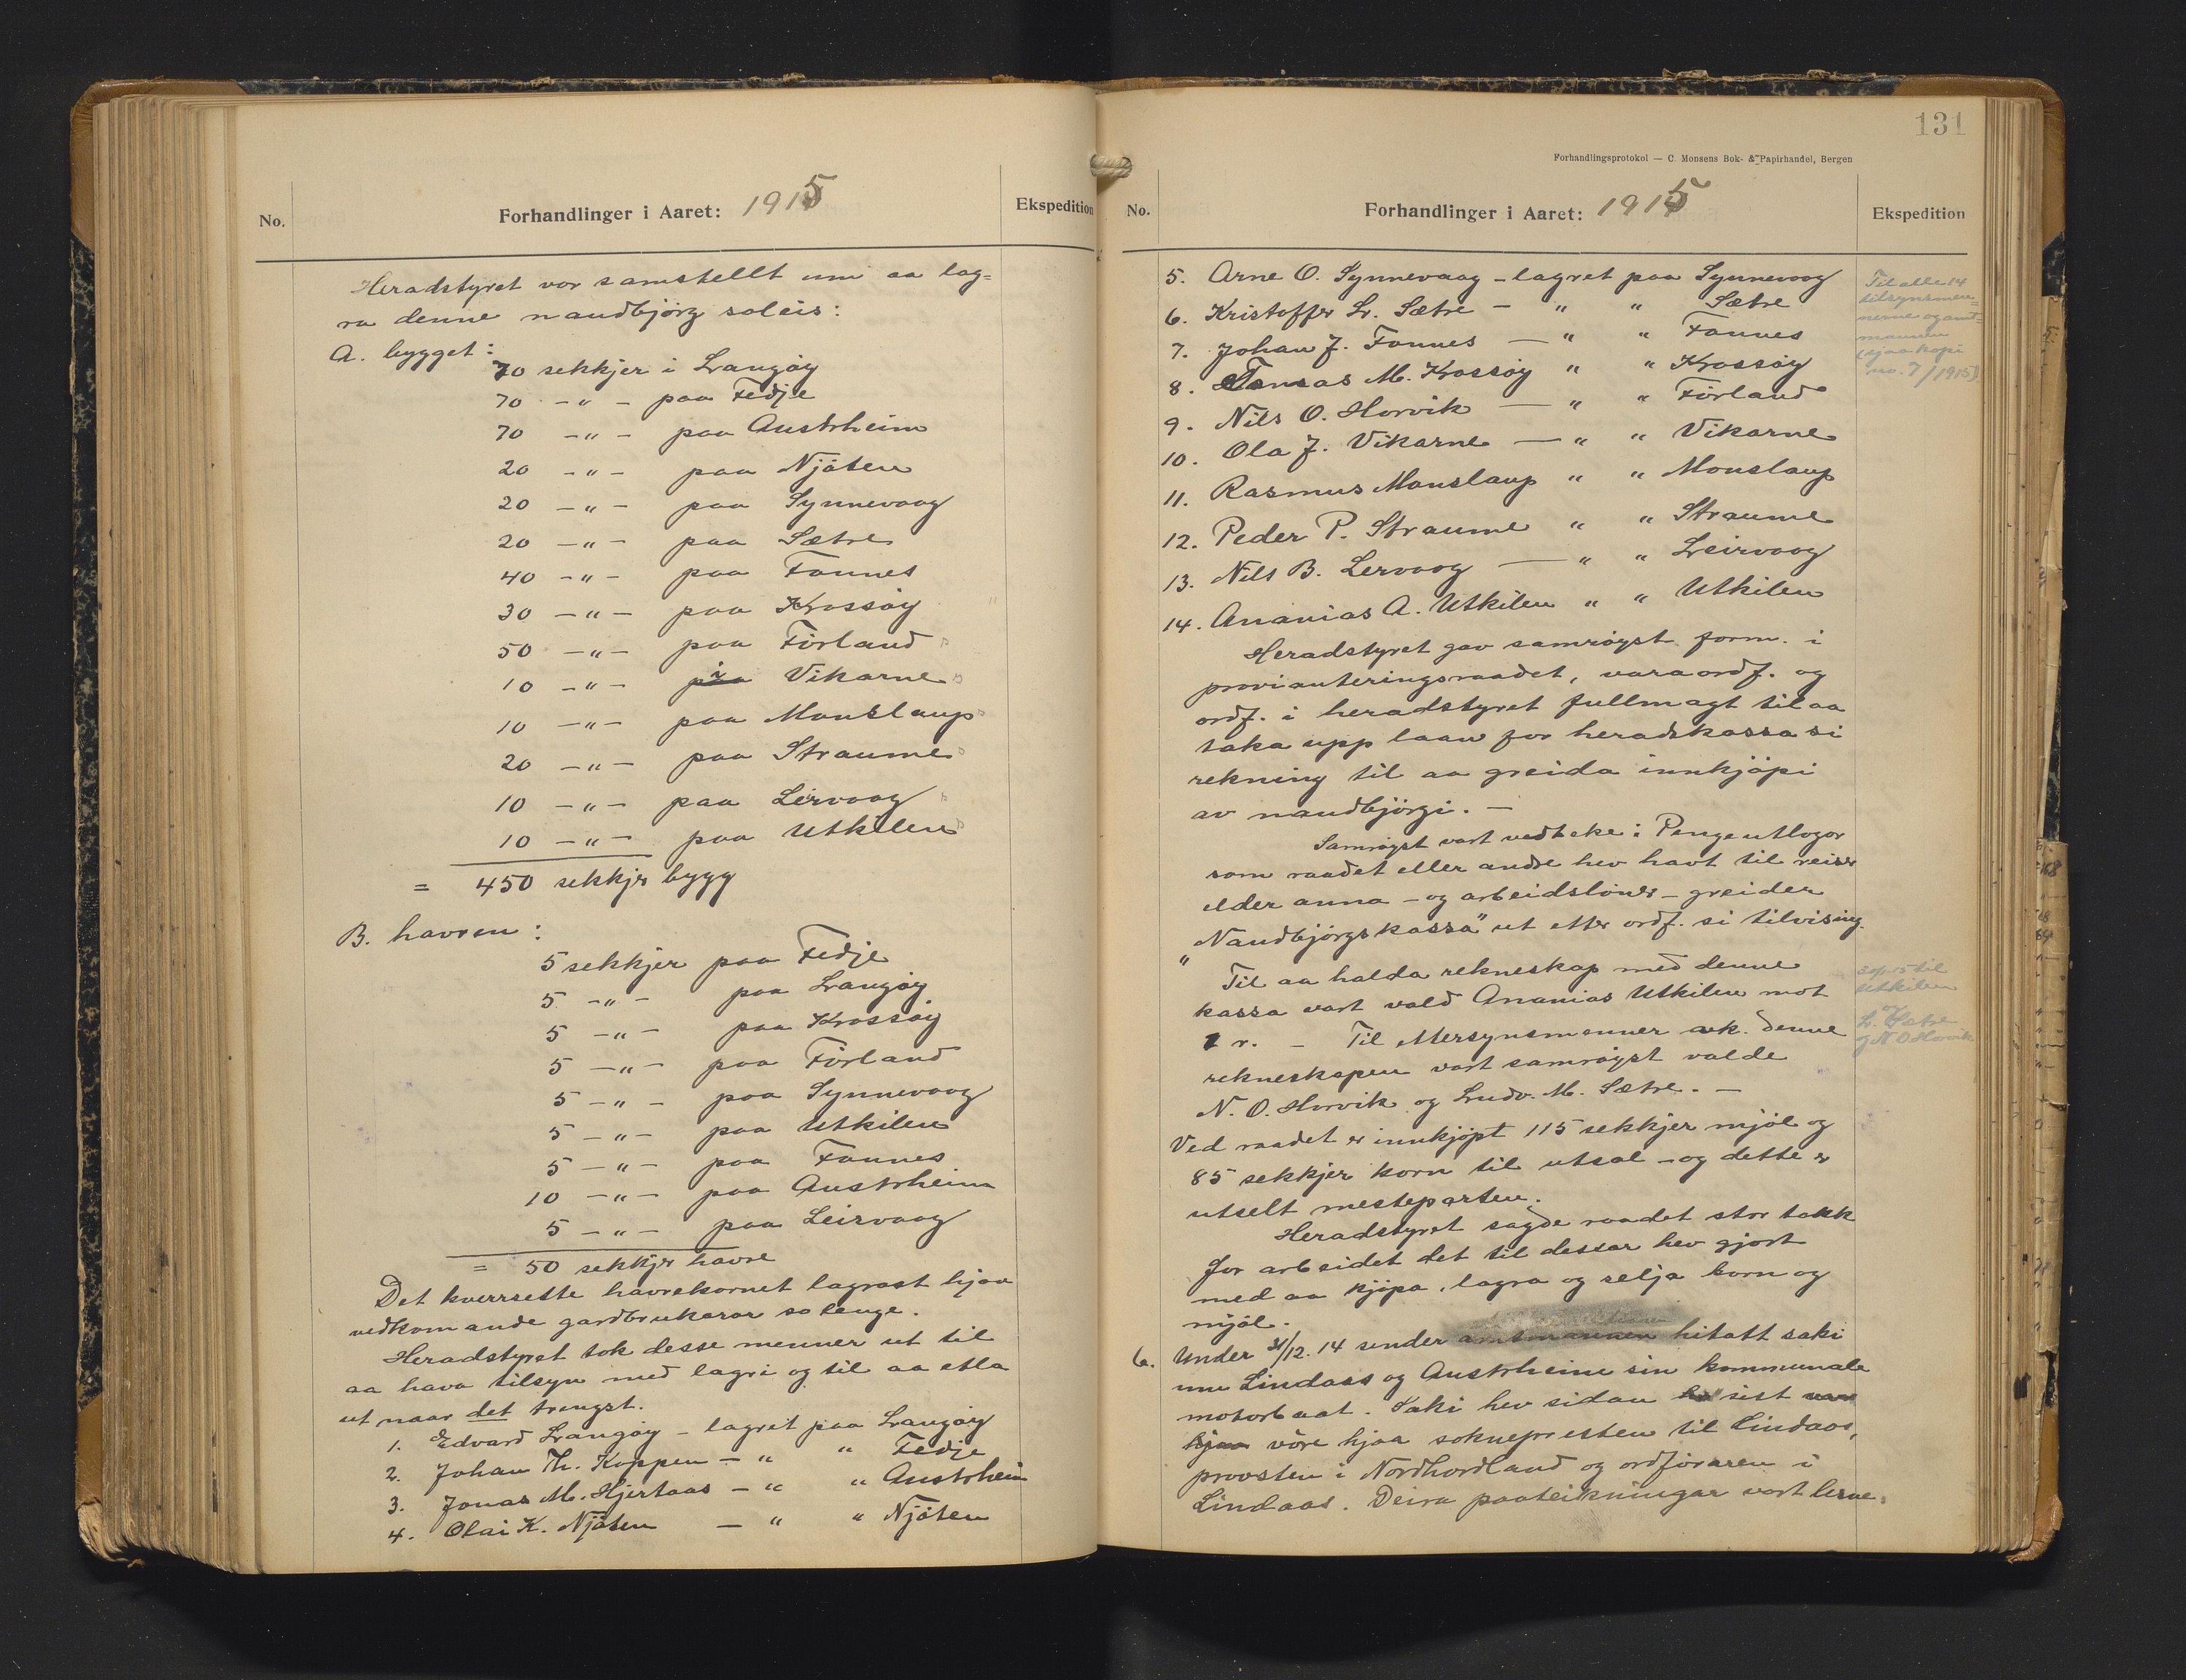 No.
Forhandlinger i Aaret: 1915
Ekspedition
Heradstyret var samstellt um aa lag=
ra denne naudbjörg soleis:
A. bygget:
70 sekkjer i Langöy
70 -"- paa Fedje
70 -"- paa Austrheim
20 -"- paa Njöten
20 -"- paa Synnevaag
20 -"- paa Sætre
40 -"- paa Fonnes
30 -"- paa Krossöy
50 -"- paa Förland
10 -"- i Vikarne
10 -"- paa Monslaup
20 -"- paa Straume
10 -"- paa Leirvaag
10 -"- paa Utkilen
= 450 sekkjer bygg
B. havren:
5 sekkjer paa Fedje
5 -"- paa Langöy
5 -"- paa Krossöy
5 -"- paa Förland
5 -"- paa Synnevaag
5 -"- paa Utkilen
5 -"- paa Fonnes
10 -"- paa Austrheim
5 -"- paa Leirvaag
= 50 sekkjer havre
Det kverrsette havrekornet lagrast hjaa
vedkomande gardbrukarar so lenge.
Heradstyret tok desse menner ut til
aa hava tilsyn med lagri og til aa etla
ut naar det trengst.
1. Edvard Langöy - lagret paa Langöy
2. Johan Th. Koppen - " " Fedje
3. Jonas M. Hjertaas - " " Austrheim
4. Olai K. Njöten - " " Njöten
131
Forhandlingsprotokol — C. Monsens Bok- & Papirhandel, Bergen
No.
Forhandlinger i Aaret: 1915
Ekspedition
5. Arne O. Synnevaag - lagret paa Synnevaag
6. Kristoffer L. Sætre - " " Sætre
7. Johan J. Fonnes - " " Fonnes
8. Tomas M. Krossöy " " Krossöy
9. Nils O. Horvik - " " Förland
10. Ola J. Vikarne - " " Vikarne
11. Rasmus Monslaup " " Monslaup
12. Peder P. Straume " " Straume
13. Nils B. Lervaag - " " Leirvaag
14. Ananias A. Utkilen " " Utkilen
Til alle 14
tilsynsmen=
nerne og amt=
mannen
(sjaa kopi
no. 7/1915)
Heradstyret gav samröyst form. i
provianteringsraadet, varaordf. og
ordf. i heradstyret fullmagt til aa
taka upp laan for heradskassa si
rekning til aa greida innkjöpi
av naudbjörgi. -
Samröyst vart vedteke: Pengeutlogor
som raadet eller andre hev havt til reiser
elder anna - og arbeidslöner - greider
"Naudbjörgskassa" ut etter ordf. si tilvising.
Til aa halda rekneskap med denne
kassa vart vald Ananias Utkilen mot
1 r. - Til ettersynsmenner avk. denne
rekneskapen vart samröyst valde
N. O. Horvik og Ludv. M. Sætre. -
til
Utkilen
og
L. Sætre
og N O Horvik
Ved raadet er innkjöpt 115 sekkjer mjöl og
85 sekkjer korn til utsal - og dette er
utselt mesteparten.
Heradstyret sagde raadet stor takk
for arbeidet det til dessar hev gjort
med aa kjöpa, lagra og selja korn og
mjöl.
6. Under 31/12. 14 sender amtmannen hitatt saki
um Lindaas og Austrheim sin kommunale
motorbaat. Saki hev sidan sist
hjaa vöre hjaa soknepresten til Lindaas,
provsten i Nordhordland og ordföraren i
Lindaas. Deira paateikningar vart lesne.